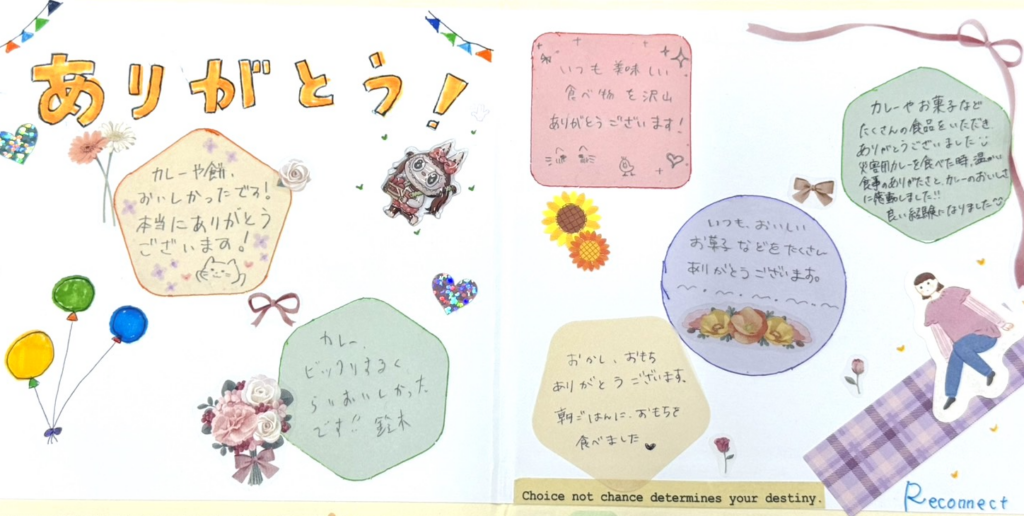 ありがとう!
カレーや餅、
おいしかったです!
本当にありがとう
ございます!
カレー、
ビックリするく
らいおいしかった
です!! 鈴木
いつも美味しい
食べ物を沢山
ありがとうございます!
いつも、おいしい
お菓子などをたくさん
ありがとうございます。
カレーやお菓子など
たくさんの食品をいただき
ありがとうございました
災害用カレーを食べた時、温かい
食事のありがたさと、カレーのおいしさ
に感動しました!!
良い経験になりました
おかし、おもち
ありがとうございます。
朝ごはんに、おもちを
食べました
Choice not chance determines your destiny.
Reconnect